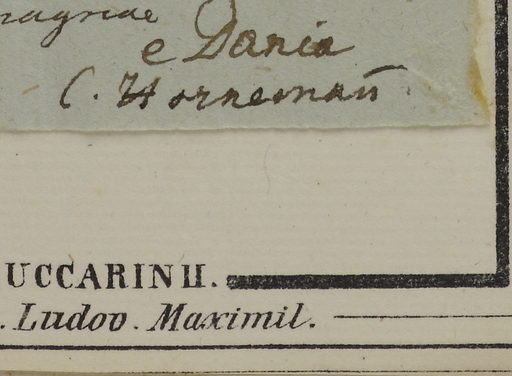 magnae
e Dania
C. Hornemañ.
UCCARINII.
. Ludov. Maximil.